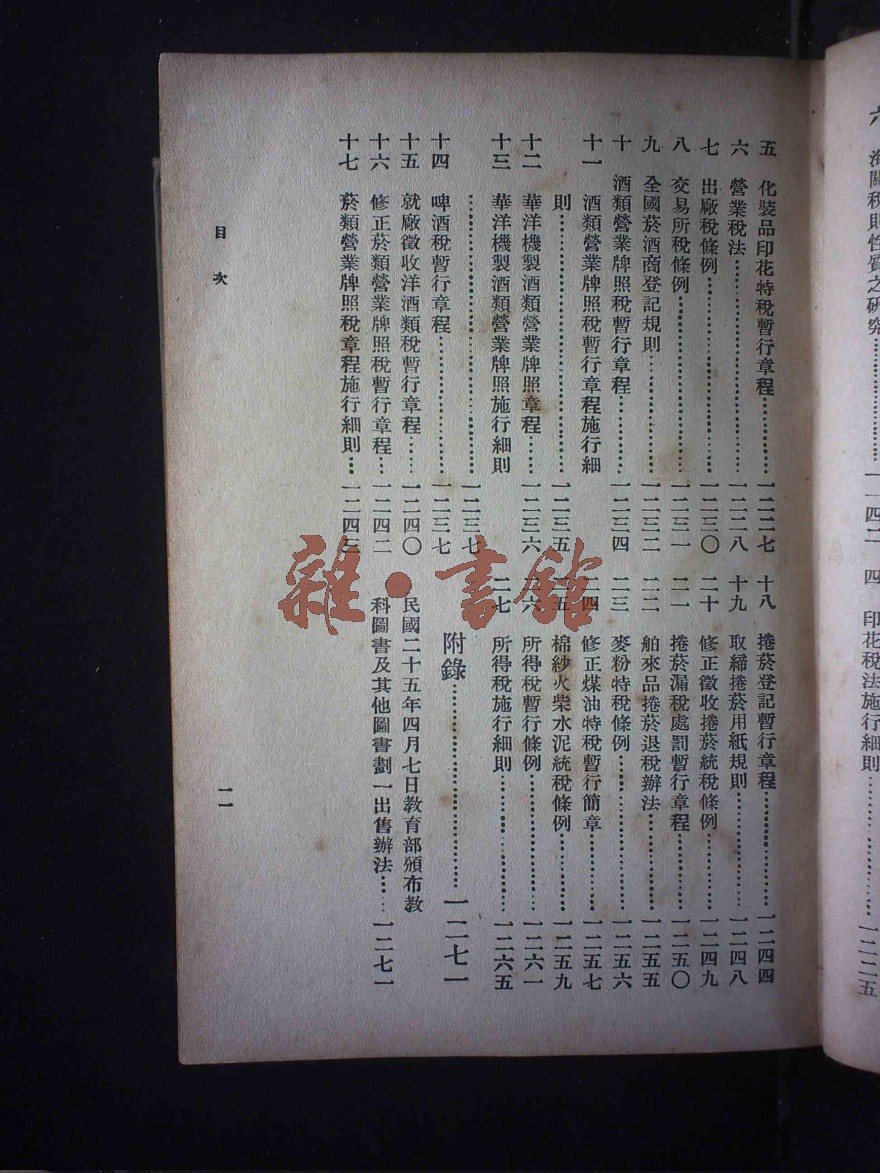 六 海關稅則性質之研究……一一四二
四 印花稅法施行細則……一二二五
五 化裝品印花特稅暫行章程……一二二七
六 營業稅法……一二二八
七 出廠稅條例……一二三〇
八 交易所稅條例……一二三一
九 全國菸酒商登記規則……一二三二
十 酒類營業牌照稅暫行章程……一二三四
十一 酒類營業牌照稅暫行章程施行細
則……一二三五
十二 華洋機製酒類營業牌照章程……一二三六
十三 華洋機製酒類營業牌照施行細則
……一二三七
十四 啤酒稅暫行章程……一二三七
十五 就廠徵收洋酒類稅暫行章程……一二四〇
十六 修正菸類營業牌照稅暫行章程…一二四二
十七 菸類營業牌照稅章程施行細則…一二四三
十八 捲菸登記暫行章程……一二四四
十九 取締捲菸用紙規則……一二四八
二十 修正徵收捲菸統稅條例……一二四九
二一 捲菸漏稅處罰暫行章程……一二五〇
二二 舶來品捲菸退稅辦法……一二五五
二三 麥粉特稅條例……一二五六
二四 修正煤油特稅暫行簡章……一二五七
二五 棉紗火柴水泥統稅條例……一二五九
二六 所得稅暫行條例……一二六一
二七 所得稅施行細則……一二六五
附錄……一二七一
民國二十五年四月七日教育部頒布教
科圖書及其他圖書劃一出售辦法……一二七一
目次
一一
雜·書館